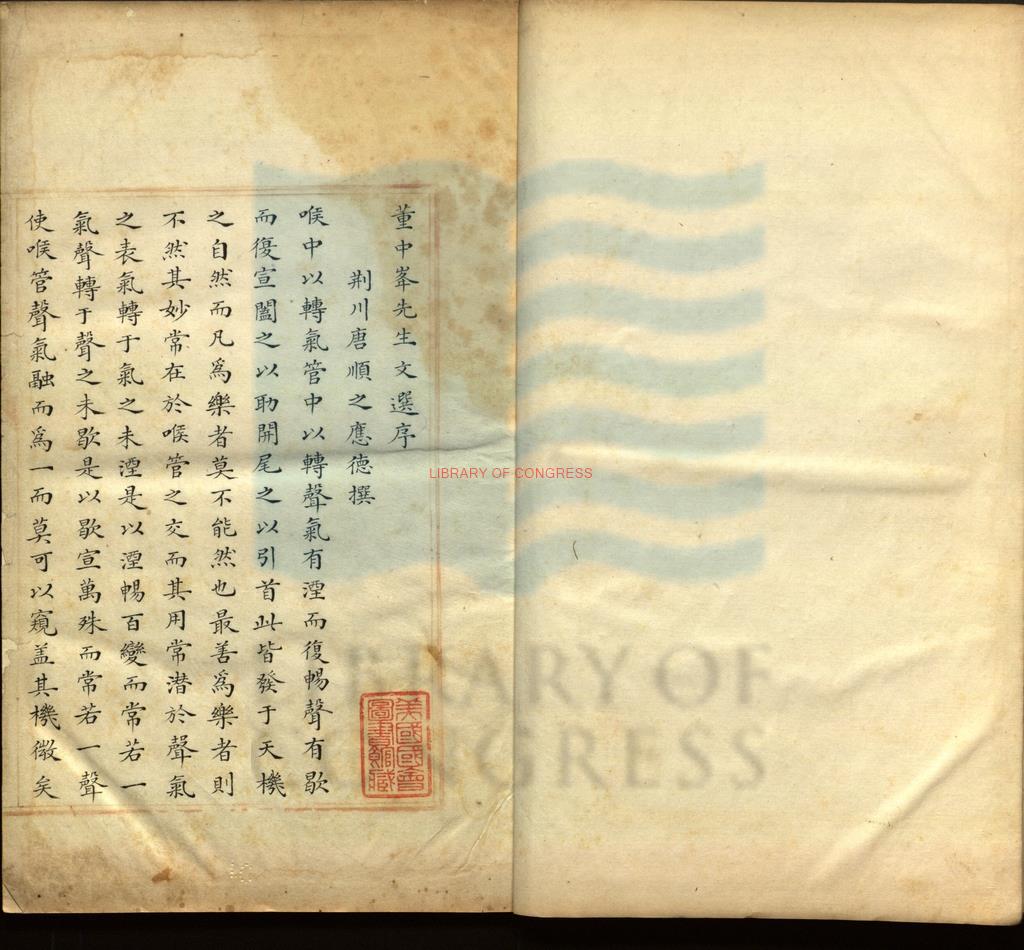 董中峯先生文選序
荆川唐順之應德撰
喉中以轉氣管中以轉聲氣有湮而復暢聲有歇
而復宣闔之以助開尾之以引首此皆發于天機
之自然而凡爲樂者莫不能然也最善爲樂者則
不然其妙常在於喉管之交而其用常潜於聲氣
之表氣轉于氣之未湮是以湮暢百變而常若一
氣聲轉于聲之未歇是以歇宣萬殊而常若一聲
使喉管聲氣融而爲一而莫可以窺盖其機微矣
美國國會
圖書館藏
LIBRARY OF CONGRESS
LIBRARY OF
CONGRESS